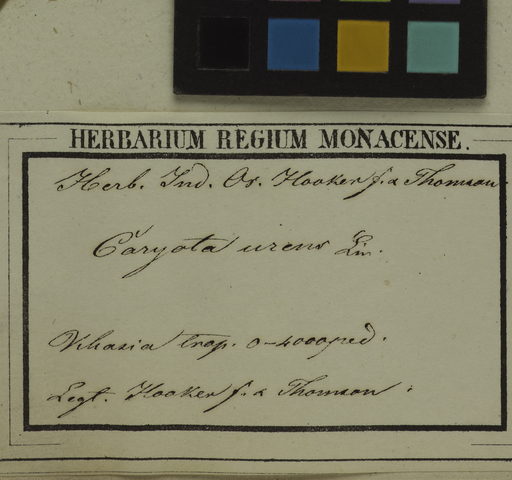 HERBARIUM REGIUM MONACENSE.
Herb. Ind. Or. Hooker f. & Thomson.
Caryota urens Lin.
Khasia trop. 0-4000ped.
Legt. Hooker f. & Thomson.